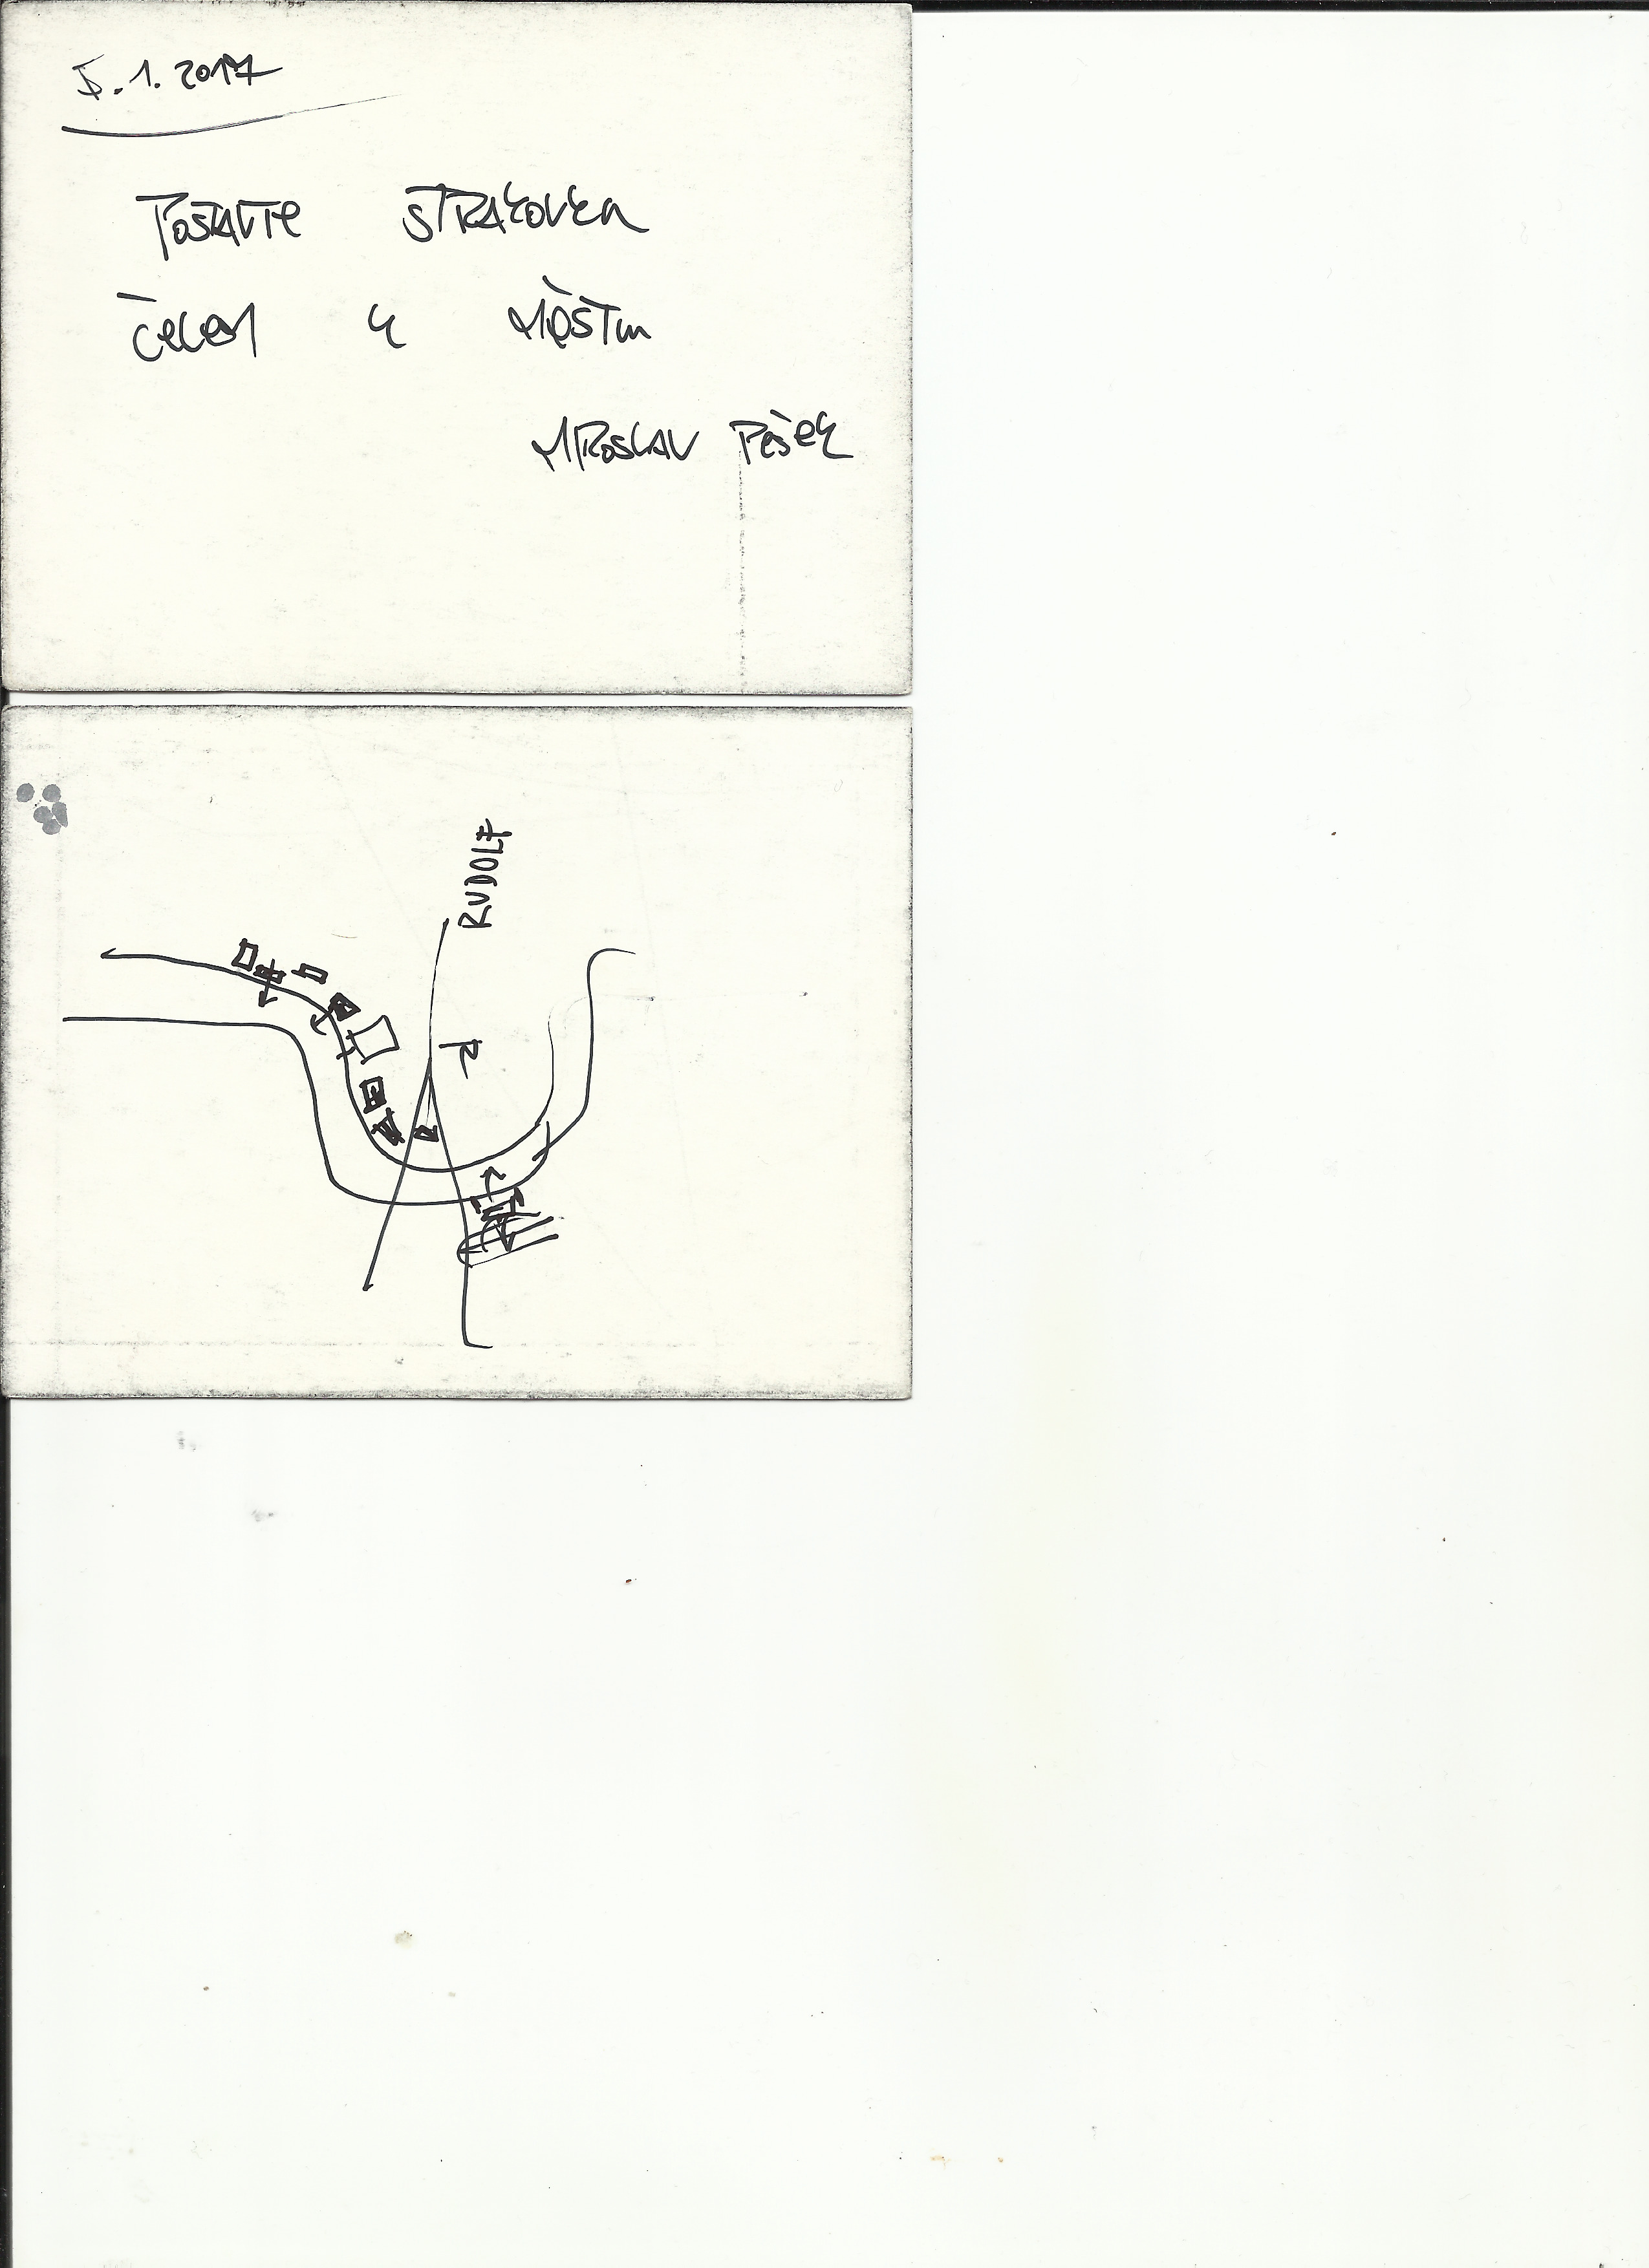 5.1.2017
POSTAVTE STRAKOVKU
ČELEM K MĚSTU
MIROSLAV PEŠEK
RUDOLF